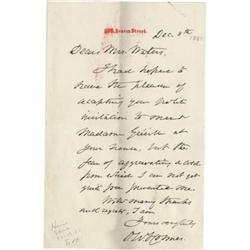 296, Beacon Street.
Dec. 8th 1881
Dear Mrs Waters,
I had hoped to
have the pleasure of
accepting your polite
invitation to meet
Madame
at
your house, but the
fear of aggravating a cold
from which I have not yet
quite
prevented me.
With many thanks
and regrets, I am
Yours very truly
O W Holmes.